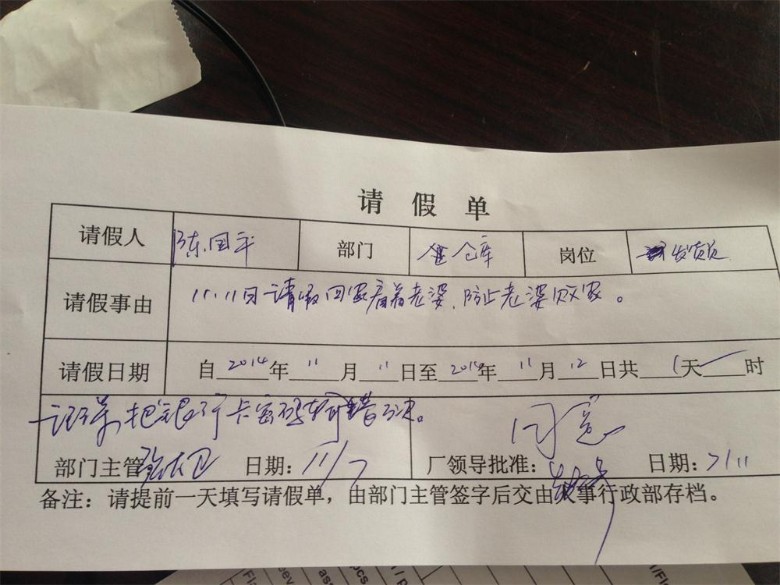 请假单
请假人 陈国平 部门 仓库 岗位 发货员
请假事由 11.11日请假回家看着老婆,防止老婆败家。
请假日期 自2014年11月11日至2014年11月12日共1天 时
把银行卡密码 错 次。 同意
部门主管 日期:11/7 厂领导批准: 日期:7/11
备注:请提前一天填写请假单,由部门主管签字后交由 事行政部存档。